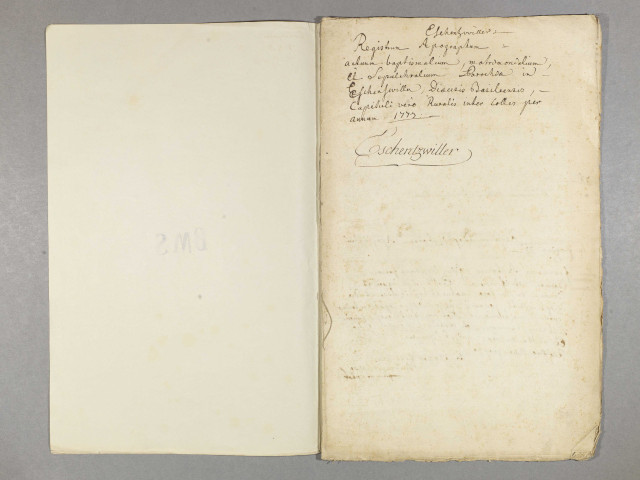 Eschentzwiller
Registrum Apographum
actuum baptismalium, matrimonialium,
et Sepulchralium Parochiæ in
Eschenswiller, Diœcesis Basileensis,
Capituli vero Ruralis inter Colles per
annum 1773
Eschentzwiller
BMS